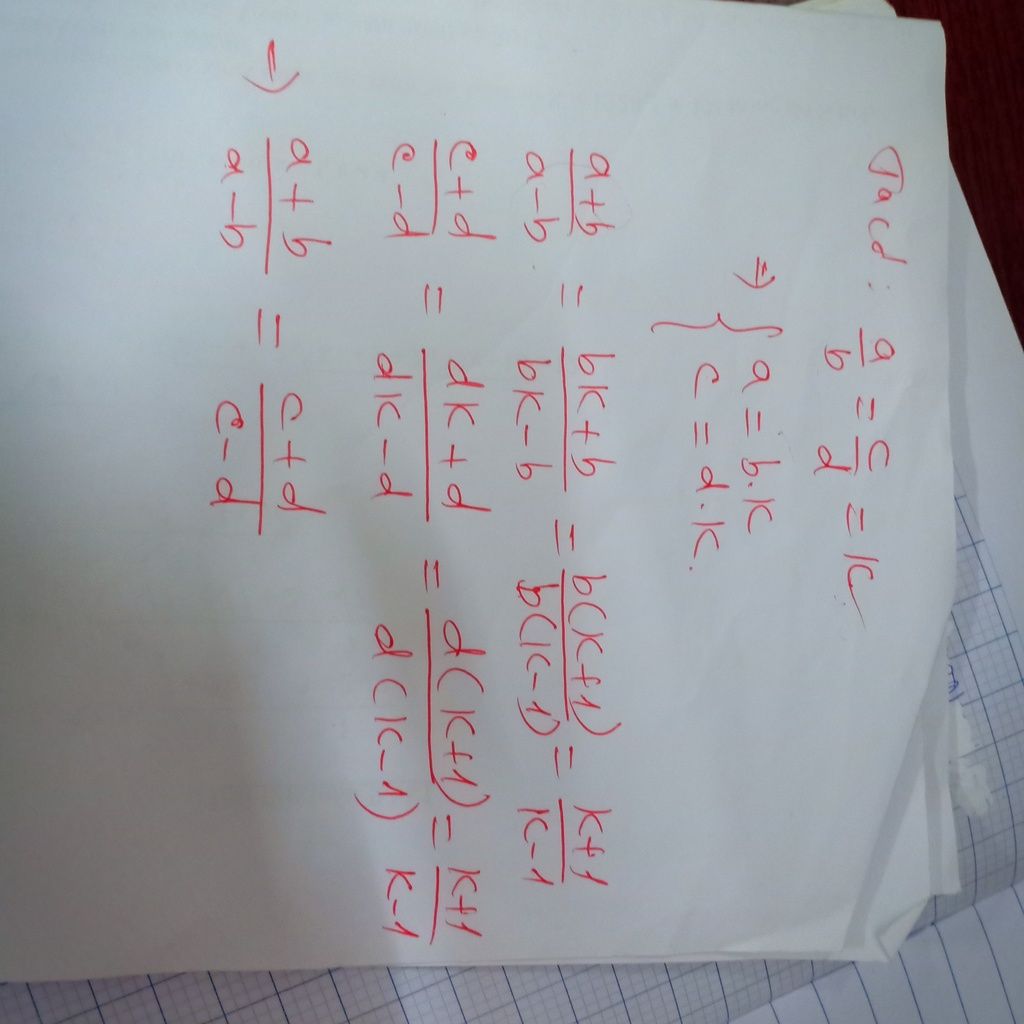 Ta có : a/b = c/d = k
⇒ { a = b.k
c = d.k.
a+b/a-b = bk+b/bk-b = b(k+1)/b(k-1) = k+1/k-1
c+d/c-d = dk+d/dk-d = d(k+1)/d(k-1) = k+1/k-1
⇒ a+b/a-b = c+d/c-d